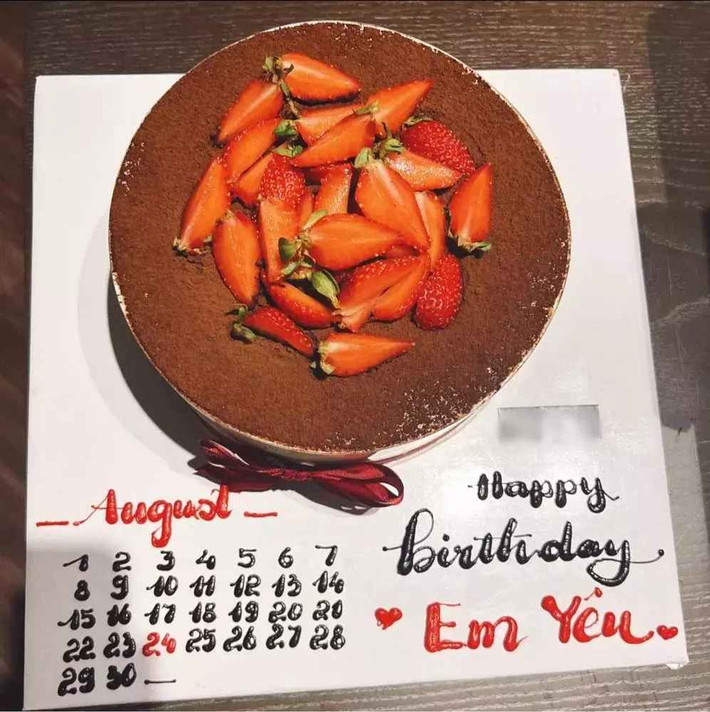 August
1 2 3 4 5 6 7
8 9 10 11 12 13 14
15 16 17 18 19 20 21
22 23 24 25 26 27 28
29 30
Happy
birthday
Em Yêu